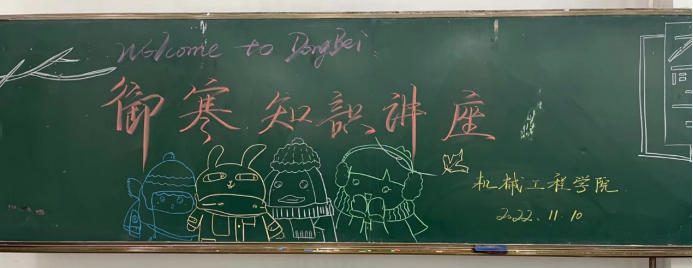 Welcome to DongBei
御寒知識讲座
机械工程学院
2022.11.10